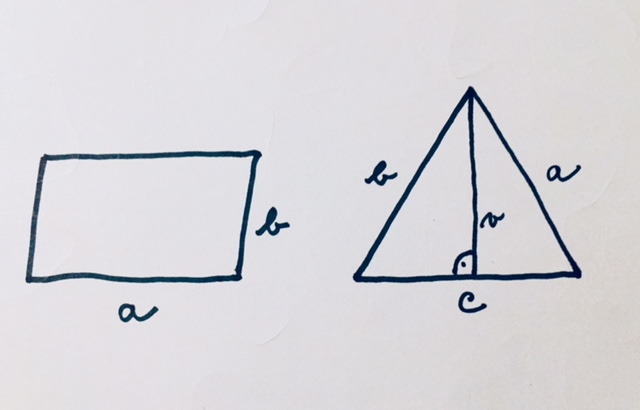 b
a
b
a
v
c